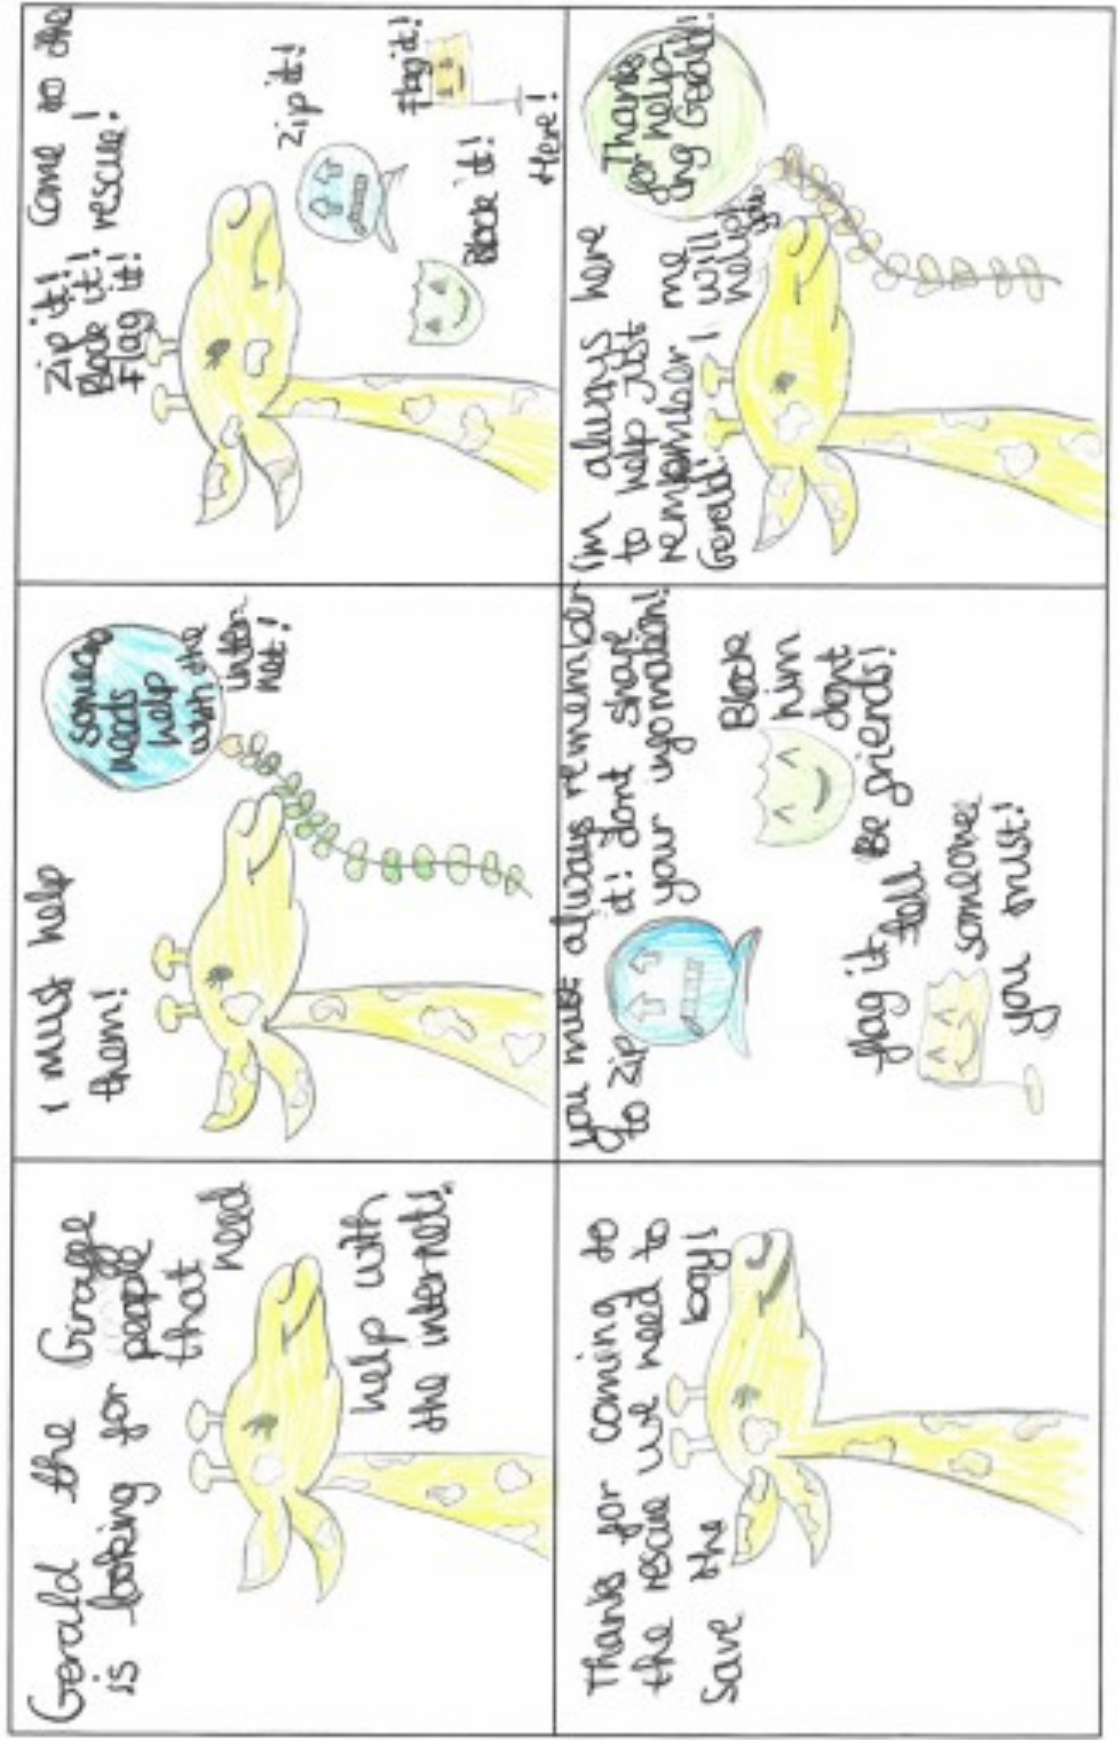 Gerald the Giraffe
is looking for people
that need
help with
the internet!
I must help
them!
Someone
needs
help
with the
inter-
net!
Zip it!
Block it!
Flag it!
Come to the
rescue!
Zip it!
Flag it!
Block it!
Here!
Thanks for coming to
the rescue we need to
Save the boy!
you must always remember
to Zip it! dont share
your ingomation!
Block
him
dont
Be friends!
flag it, tell
someone
you trust!
I'm always here
to help just
remember me
Gerald! I will
help
you
Thanks
for help-
ing Gerald!